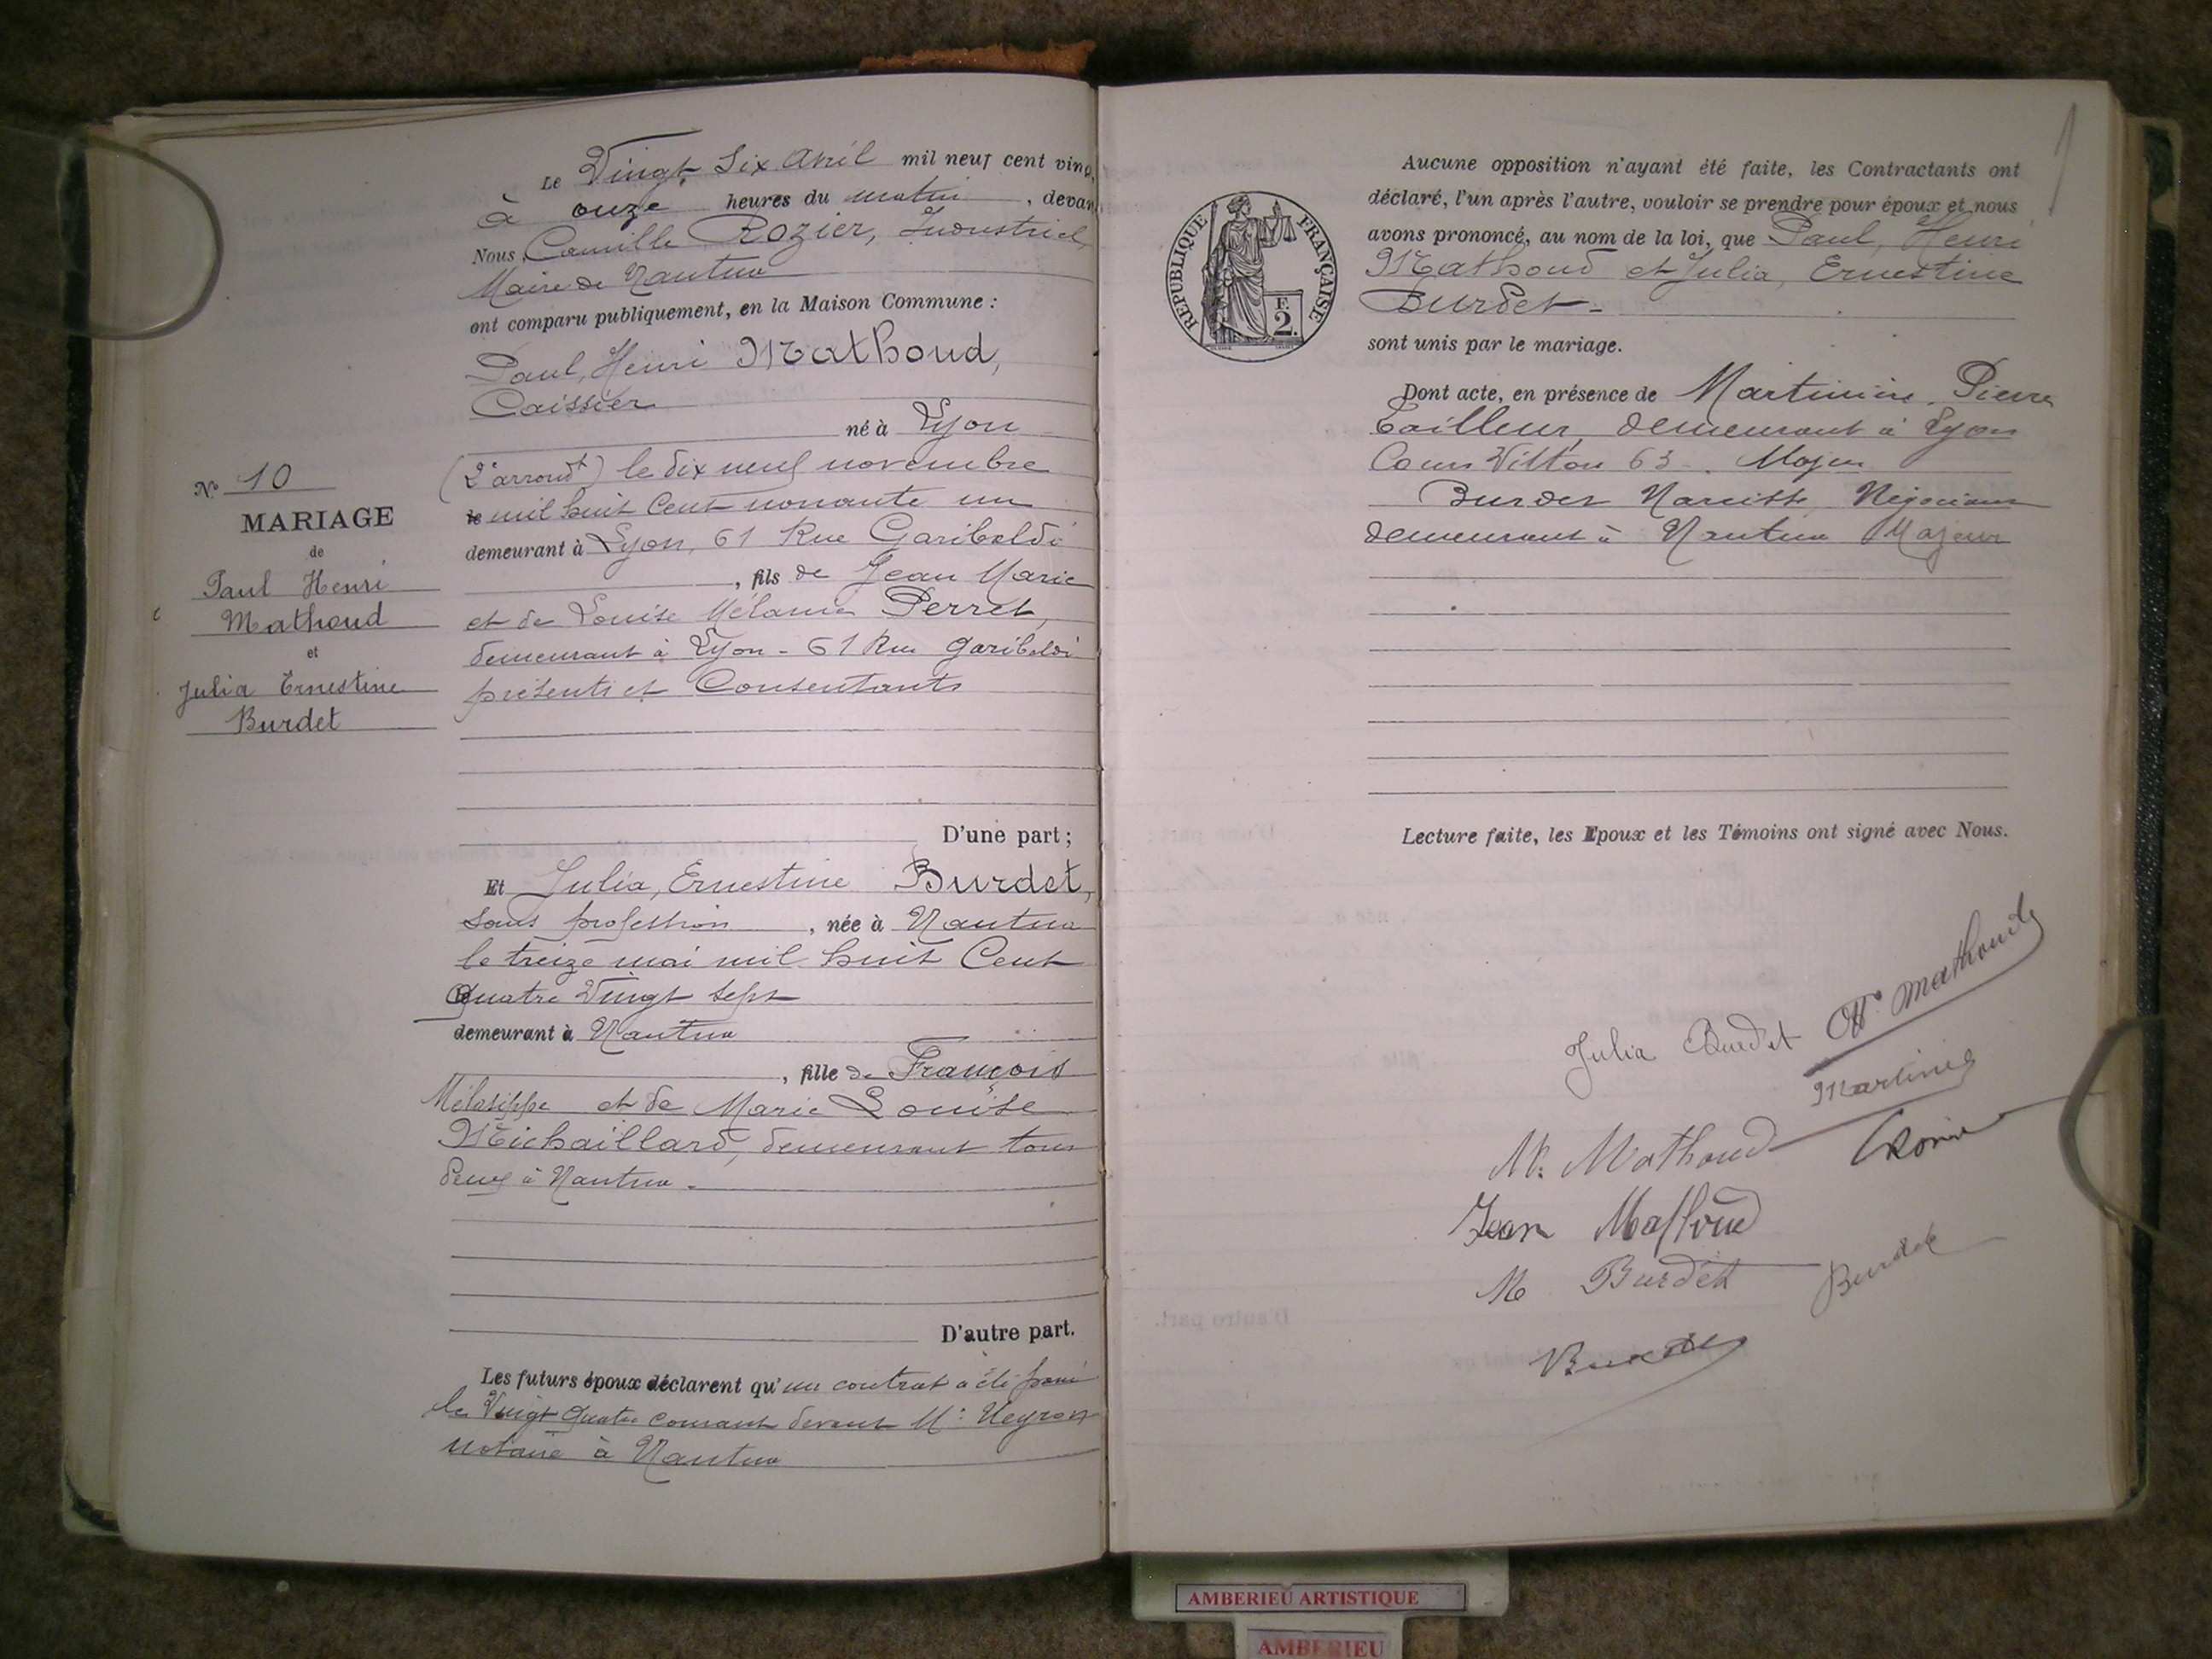 N° 10
MARIAGE
de
Paul Henri
Mathoud
et
Julia Ernestine
Burdet
Le Vingt Six Avril mil neuf cent vingt,
à onze heures du matin, devant
Nous, Camille Rozier, Industriel,
Maire de Nantua
ont comparu publiquement, en la Maison Commune :
Paul, Henri Mathoud,
Caissier
né à Lyon
(2e arrondt) le dix neuf novembre
mil huit cent nonante un
demeurant à Lyon, 61 Rue Garibaldi
, fils de Jean Marie
et de Louise Mélanie Perret,
demeurant à Lyon - 61 Rue Garibaldi
présents et Consentants
D'une part ;
Et Julia, Ernestine Burdet,
sans profession, née à Nantua
le treize mai mil huit Cent
Quatre Vingt sept
demeurant à Nantua
, fille de François
Mélasippe et de Marie Louise
Michaillard, demeurant tous
deux à Nantua -
D'autre part.
Les futurs époux déclarent qu'un contrat a été passé
le Vingt quatre courant devant Me Neyron
notaire à Nantua
RÉPUBLIQUE FRANÇAISE
F.
2.
Aucune opposition n'ayant été faite, les Contractants ont
déclaré, l'un après l'autre, vouloir se prendre pour époux et nous
avons prononcé, au nom de la loi, que Paul, Henri
Mathoud et Julia, Ernestine
Burdet -
sont unis par le mariage.
Dont acte, en présence de Pierre
tailleur, demeurant à Lyon
Cours Vitton 63 -. Majeur
Burdet Narcisse, Négociant
demeurant à Nantua Majeur
Lecture faite, les Epoux et les Témoins ont signé avec Nous.
Julia Burdet Mathoud
M. Mathoud
Jean Mathoud
M Burdet Burdet
Burdet
AMBERIEU ARTISTIQUE
AMBERIEU